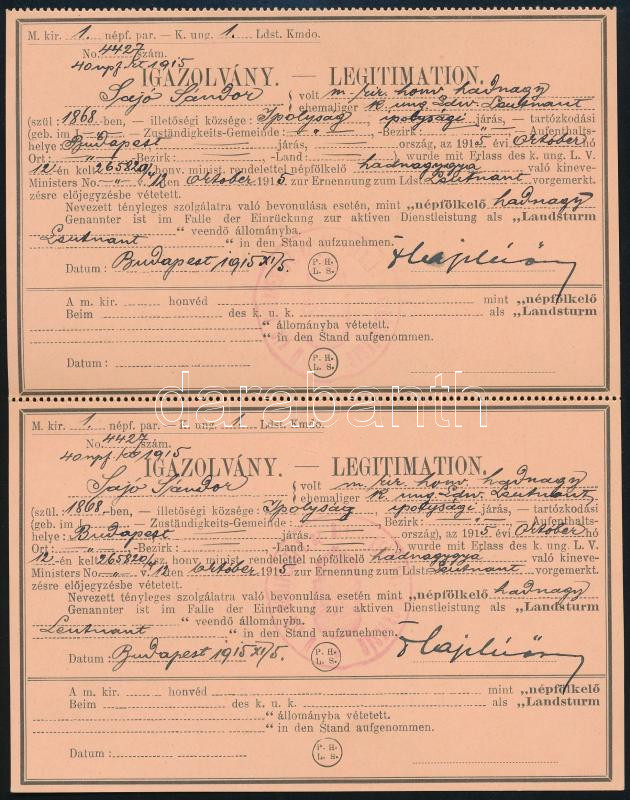 M. kir. 1. népf. par. — K. ung. 1. Ldst. Kmdo.
No. 4427 szám.
1915
IGAZOLVÁNY. — LEGITIMATION.
Sajó Sándor volt m. kir. honv. hadnagy
ehemaliger k. ung. Ldw. Leutnant
(szül. 1868.-ben, illetőségi községe: Ipolyság, ipolysági járás, — tartózkodási
(geb. im „ — Zuständigkeits-Gemeinde: „ -Bezirk „ — Aufenthalts-
helye: Budapest járás, ország), az 1915 évi October hó
Ort: „ -Bezirk: -Land: wurde mit Erlass des k. ung. L. V.
12-én kelt 265829 sz. honv. minist. rendelettel népfölkelő hadnagygya való kineve-
Ministers No. „ v. 12 ten October 1915 zur Ernennung zum Ldst. Leutnant vorgemerkt.
zésre előjegyzésbe vétetett.
Nevezett tényleges szolgálatra való bevonulása esetén, mint „népfölkelő hadnagy
Genannter ist im Falle der Einrückung zur aktiven Dienstleistung als „Landsturm
Leutnant “ veendő állományba.
“ in den Stand aufzunehmen.
Datum: Budapest 1915 XI/5.
P. H.
L. S.
A m. kir. honvéd mint „népfölkelő
Beim des k. u. k. als „Landsturm
“ állományba vétetett.
“ in den Stand aufgenommen.
Datum:
P. H.
L. S.
darabanth
M. kir. 1. népf. par. — K. ung. 1. Ldst. Kmdo.
No. 4427 szám.
1915
IGAZOLVÁNY. — LEGITIMATION.
Sajó Sándor volt m. kir. honv. hadnagy
ehemaliger k. ung. Ldw. Leutnant
(szül. 1868-ben, illetőségi községe: Ipolyság ipolysági járás, — tartózkodási
(geb. im „ — Zuständigkeits-Gemeinde: „ -Bezirk „ — Aufenthalts-
helye: Budapest járás, ország), az 1915 évi October hó
Ort: „ -Bezirk: -Land: wurde mit Erlass des k. ung. L. V.
12-én kelt 265829 sz. honv. minist. rendelettel népfölkelő hadnagygya való kineve-
Ministers No. „ v. 12 ten October 1915 zur Ernennung zum Ldst. Leutnant vorgemerkt.
zésre előjegyzésbe vétetett.
Nevezett tényleges szolgálatra való bevonulása esetén mint „népfölkelő hadnagy
Genannter ist im Falle der Einrückung zur aktiven Dienstleistung als „Landsturm
Leutnant “ veendő állományba.
“ in den Stand aufzunehmen.
Datum: Budapest 1915 XI/5.
P. H.
L. S.
A m. kir. honvéd mint „népfölkelő
Beim des k. u. k. als „Landsturm
“ állományba vétetett.
“ in den Stand aufgenommen.
Datum:
P. H.
L. S.